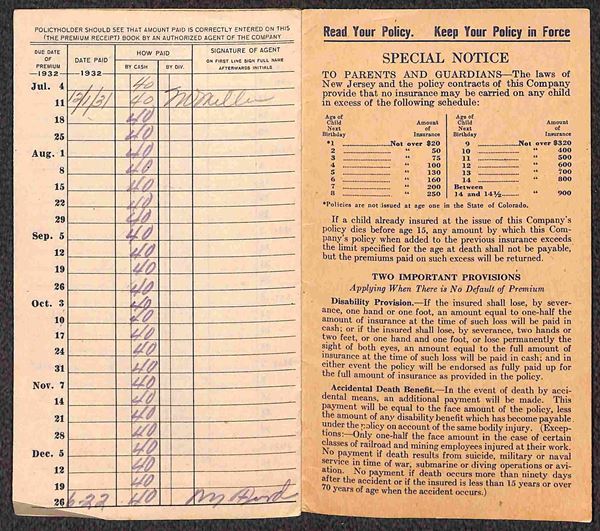 POLICYHOLDER SHOULD SEE THAT AMOUNT PAID IS CORRECTLY ENTERED ON THIS
(THE PREMIUM RECEIPT) BOOK BY AN AUTHORIZED AGENT OF THE COMPANY
DUE DATE OF PREMIUM —1932— DATE PAID —1932— HOW PAID BY CASH BY DIV. SIGNATURE OF AGENT ON FIRST LINE SIGN FULL NAME AFTERWARDS INITIALS
Jul. 4 40
11 40
18 40
25 40
Aug. 1 40
8 40
15 40
22 40
29 40
Sep. 5 40
12 40
19 40
26 40
Oct. 3 40
10 40
17 40
24 40
31 40
Nov. 7 40
14 40
21 40
28 40
Dec. 5 40
12 40
19 40
26 6-22 40
Read Your Policy. Keep Your Policy in Force
SPECIAL NOTICE
TO PARENTS AND GUARDIANS—The laws of
New Jersey and the policy contracts of this Company
provide that no insurance may be carried on any child
in excess of the following schedule:
Age of Child Next Birthday Amount of Insurance Age of Child Next Birthday Amount of Insurance
*1 Not over $20 9 Not over $320
2 " 50 10 " 400
3 " 75 11 " 500
4 " 100 12 " 600
5 " 130 13 " 700
6 " 160 14 " 800
7 " 200 Between
8 " 250 14 and 14½ " 900
*Policies are not issued at age one in the State of Colorado.
If a child already insured at the issue of this Company's
policy dies before age 15, any amount by which this Com-
pany's policy when added to the previous insurance exceeds
the limit specified for the age at death shall not be payable,
but the premiums paid on such excess will be returned.
TWO IMPORTANT PROVISIONS
Applying When There is No Default of Premium
Disability Provision.—If the insured shall lose, by sever-
ance, one hand or one foot, an amount equal to one-half the
amount of insurance at the time of such loss will be paid in
cash; or if the insured shall lose, by severance, two hands or
two feet, or one hand and one foot, or lose permanently the
sight of both eyes, an amount equal to the full amount of
insurance at the time of such loss will be paid in cash; and in
either event the policy will be endorsed as fully paid up for
the full amount of insurance as provided in the policy.
Accidental Death Benefit.—In the event of death by acci-
dental means, an additional payment will be made. This
payment will be equal to the face amount of the policy, less
the amount of any disability benefit which has become payable
under the policy on account of the same bodily injury. (Excep-
tions:—Only one-half the face amount in the case of certain
classes of railroad and mining employees injured at their work.
No payment if death results from suicide, military or naval
service in time of war, submarine or diving operations or avi-
ation. No payment if death occurs more than ninety days
after the accident or if the insured is less than 15 years or over
70 years of age when the accident occurs.)